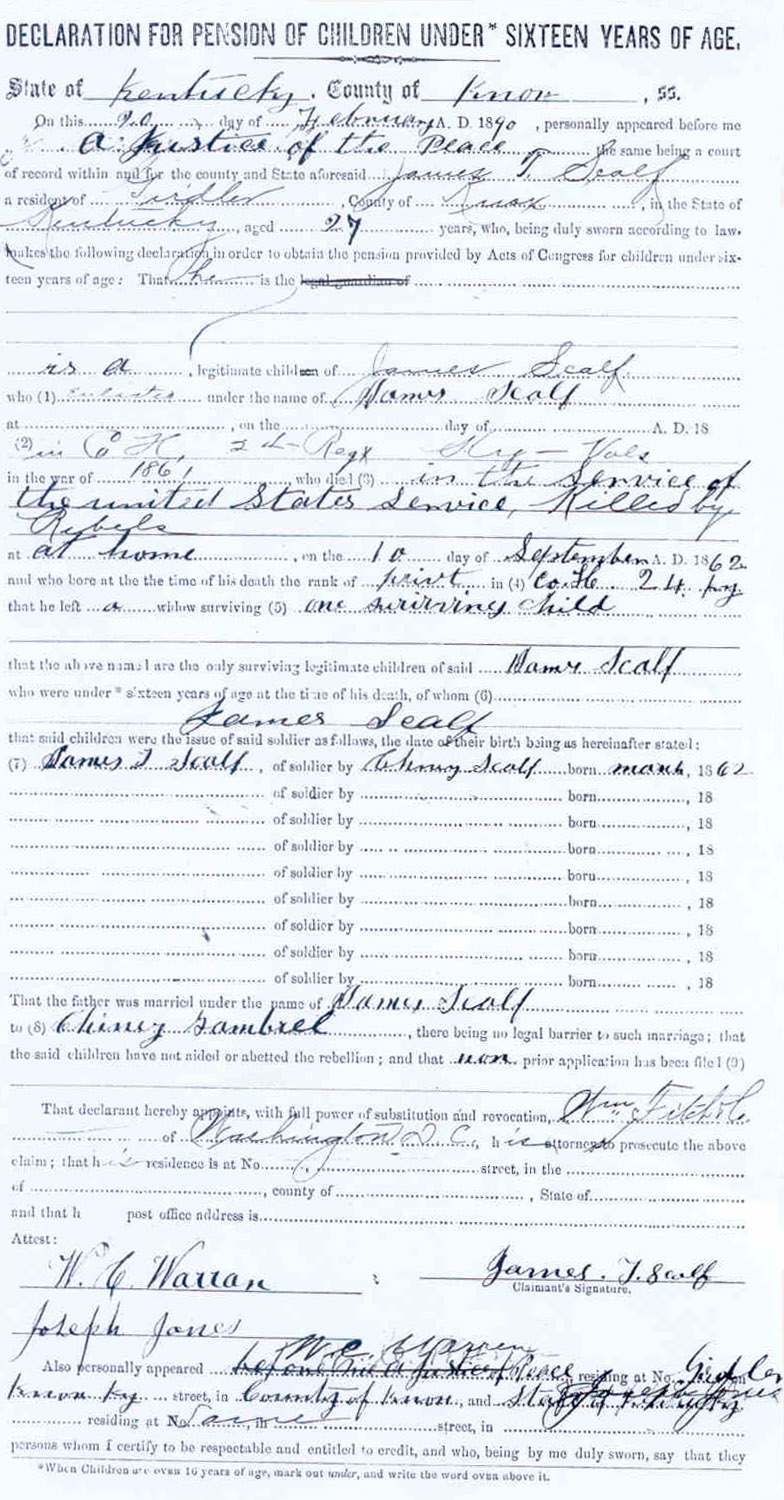 DECLARATION FOR PENSION OF CHILDREN UNDER* SIXTEEN YEARS OF AGE.
State of Kentucky. County of Knox, ss.
On this 20 day of February A. D. 1890, personally appeared before me
a Justice of the Peace the same being a court
of record within and for the county and State aforesaid James T. Scalf
a resident of, County of Knox, in the State of
Kentucky, aged 27 years, who, being duly sworn according to law.
makes the following declaration in order to obtain the pension provided by Acts of Congress for children under six-
teen years of age: That he is the legal guardian of
is a, legitimate children of James Scalf
who (1) under the name of James Scalf
at, on the day of A. D. 18
(2) in Co H, Regt Ky - Vols
in the war of 1861, who died (3) in the Service of
the united States Service, Killed by
Rebels
at at home, on the 10 day of September A. D. 1862
and who bore at the the time of his death the rank of privt in (4) Co. H. 24. Ky
that he left a widow surviving (5) one surirving child
that the above named are the only surviving legitimate children of said James Scalf
who were under * sixteen years of age at the time of his death, of whom (6)
James Scalf
that said children were the issue of said soldier as follows, the date of their birth being as hereinafter stated:
(7) James T Scalf, of soldier by Chiney Scalf born march, 1862
of soldier by born, 18
of soldier by born, 18
of soldier by born, 18
of soldier by born, 18
of soldier by born, 18
of soldier by born, 18
of soldier by born, 18
of soldier by born, 18
That the father was married under the name of James Scalf
to (8) Chiney Gambrel, there being no legal barrier to such marriage; that
the said children have not aided or abetted the rebellion; and that non prior application has been filed (9)
That declarant hereby appoints, with full power of substitution and revocation, Wm
of Washington D. C., his attorney to prosecute the above
claim; that his residence is at No. street, in the
of, county of, State of
and that h post office address is
Attest:
W. C. Warran
James. T. Scalf
Claimant's Signature.
Joseph Jones
W. C. Warren
Also personally appeared before me a Justice of Peace, residing at No.
Knox Ky street, in County of Knox, and Joseph Jones
residing at No. Same, in street, in
persons whom I certify to be respectable and entitled to credit, and who, being by me duly sworn, say that they
*When Children are over 16 years of age, mark out under, and write the word over above it.